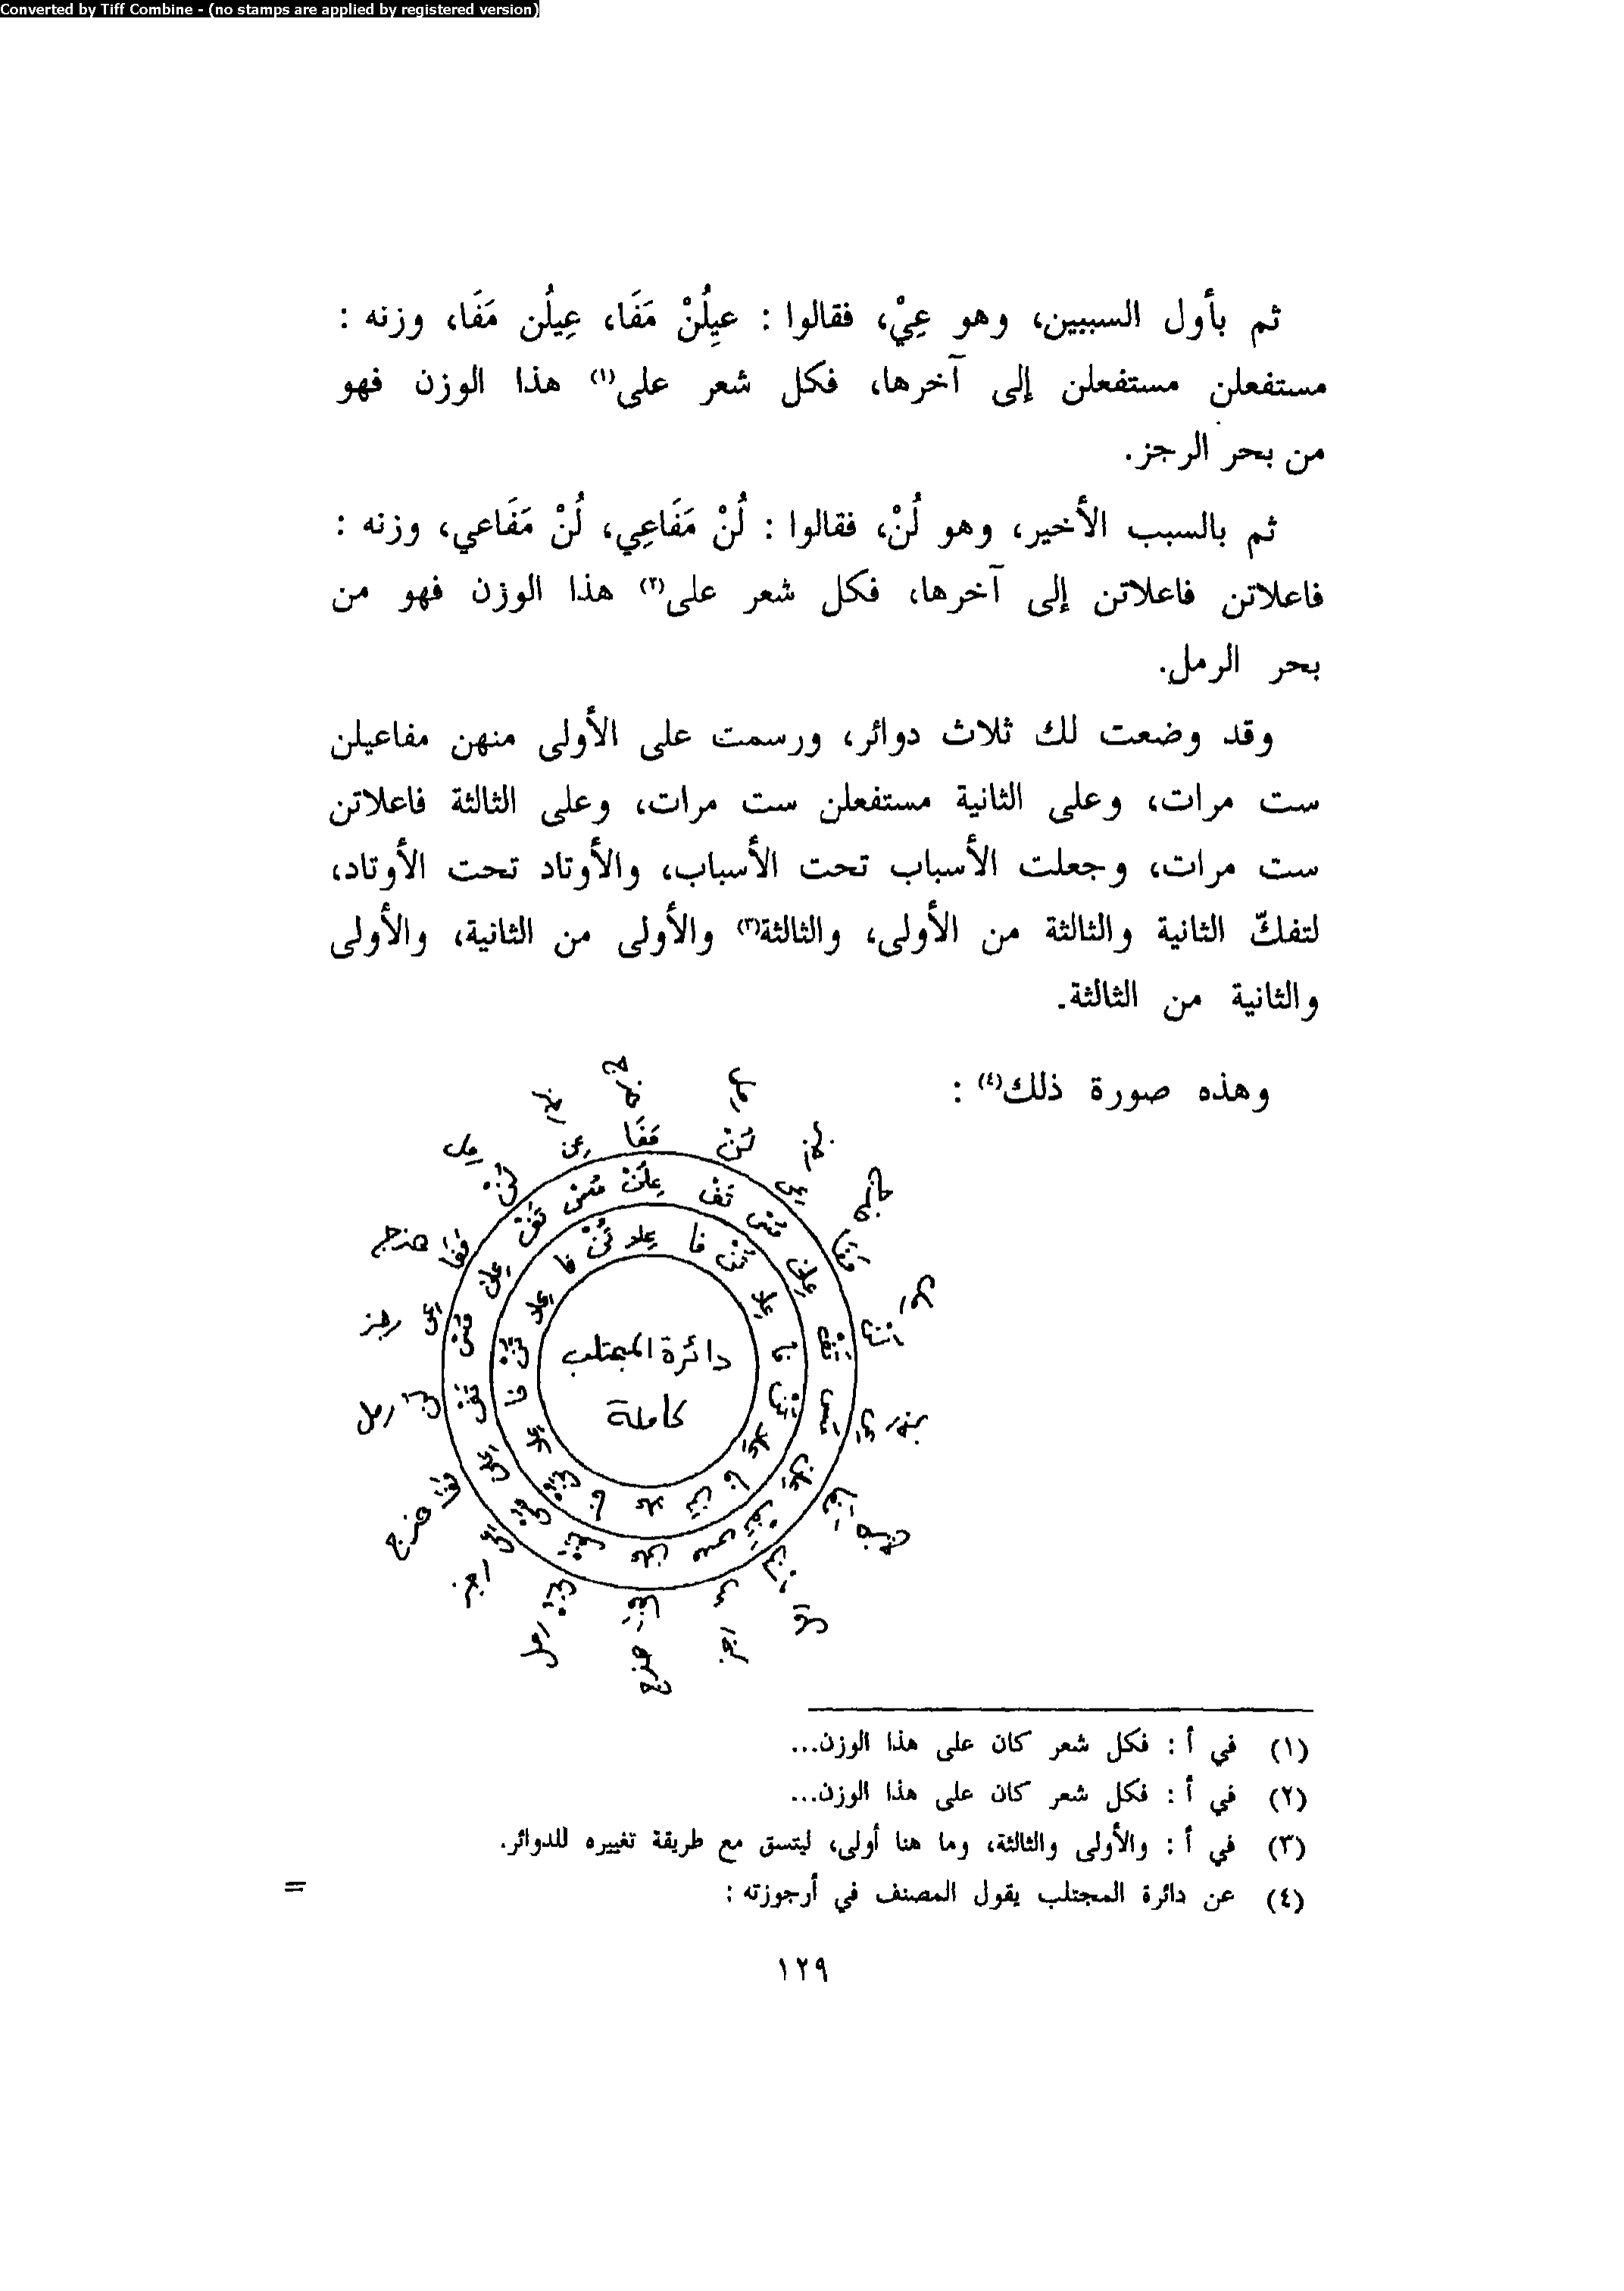 Converted by Tiff Combine - (no stamps are applied by registered version)
ثم بأول السببين، وهو عِيْ، فقالوا : عيِلُنْ مَفَا، عِيلُن مَفَا، وزنه :
مستفعلن مستفعلن إلى آخرها، فكل شعر على(١) هذا الوزن فهو
من بحر الرجز.
ثم بالسبب الأخير، وهو لُنْ، فقالوا : لُنْ مَفَاعِي، لُنْ مَفَاعي، وزنه :
فاعلاتن فاعلاتن إلى آخرها، فكل شعر على(٢) هذا الوزن فهو من
بحر الرمل.
وقد وضعت لك ثلاث دوائر، ورسمت على الأولى منهن مفاعيلن
ست مرات، وعلى الثانية مستفعلن ست مرات، وعلى الثالثة فاعلاتن
ست مرات، وجعلت الأسباب تحت الأسباب، والأوتاد تحت الأوتاد،
لتفكّ الثانية والثالثة من الأولى، والثالثة(٣) والأولى من الثانية، والأولى
والثانية من الثالثة.
وهذه صورة ذلك(٤) :
دائرة المجتلب
كاملة
(١) في أ : فكل شعر كان على هذا الوزن...
(٢) في أ : فكل شعر كان على هذا الوزن...
(٣) في أ : والأولى والثالثة، وما هنا أولى، ليتسق مع طريقة تغييره للدوائر.
(٤) عن دائرة المجتلب يقول المصنف في أرجوزته :
=
١٢٩